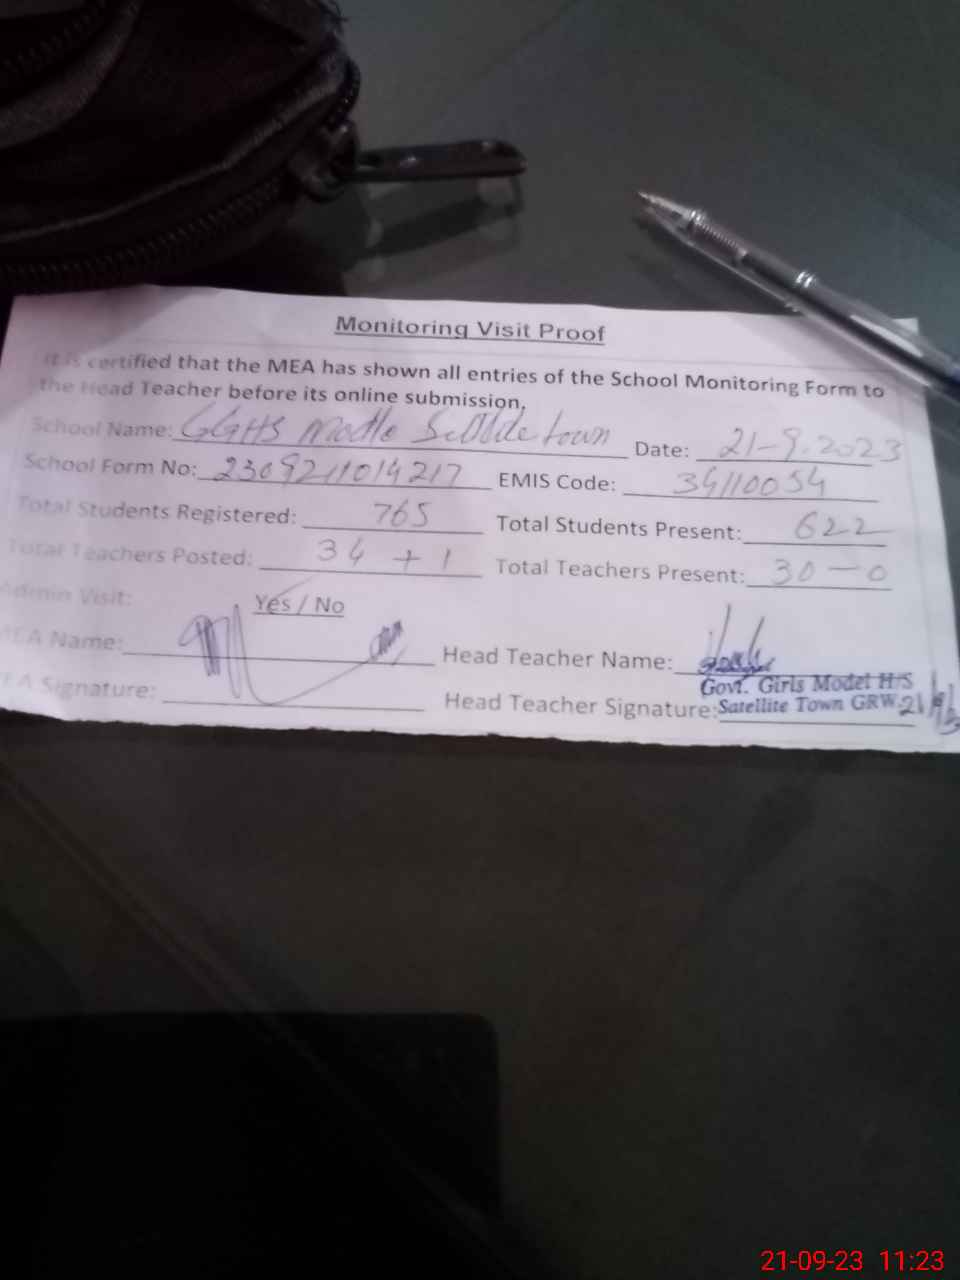 Monitoring Visit Proof
It is certified that the MEA has shown all entries of the School Monitoring Form to
the Head Teacher before its online submission.
School Name: GGHS Town Date: 21-9.2023
School Form No: 2309211014217 EMIS Code: 34110054
Total Students Registered: 765 Total Students Present: 622
Total Teachers Posted: 34 + 1 Total Teachers Present: 30 - 0
Admin Visit: Yes / No
MEA Name: Head Teacher Name:
Govt. Girls Model H/S
MEA Signature: Head Teacher Signature: Satellite Town GRW. 21/9/23
21-09-23 11:23